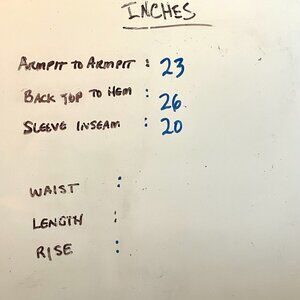 INCHES
ARMPIT TO ARMPIT : 23
BACK TOP TO HEM : 26
SLEEVE INSEAM : 20
WAIST :
LENGTH :
RISE :